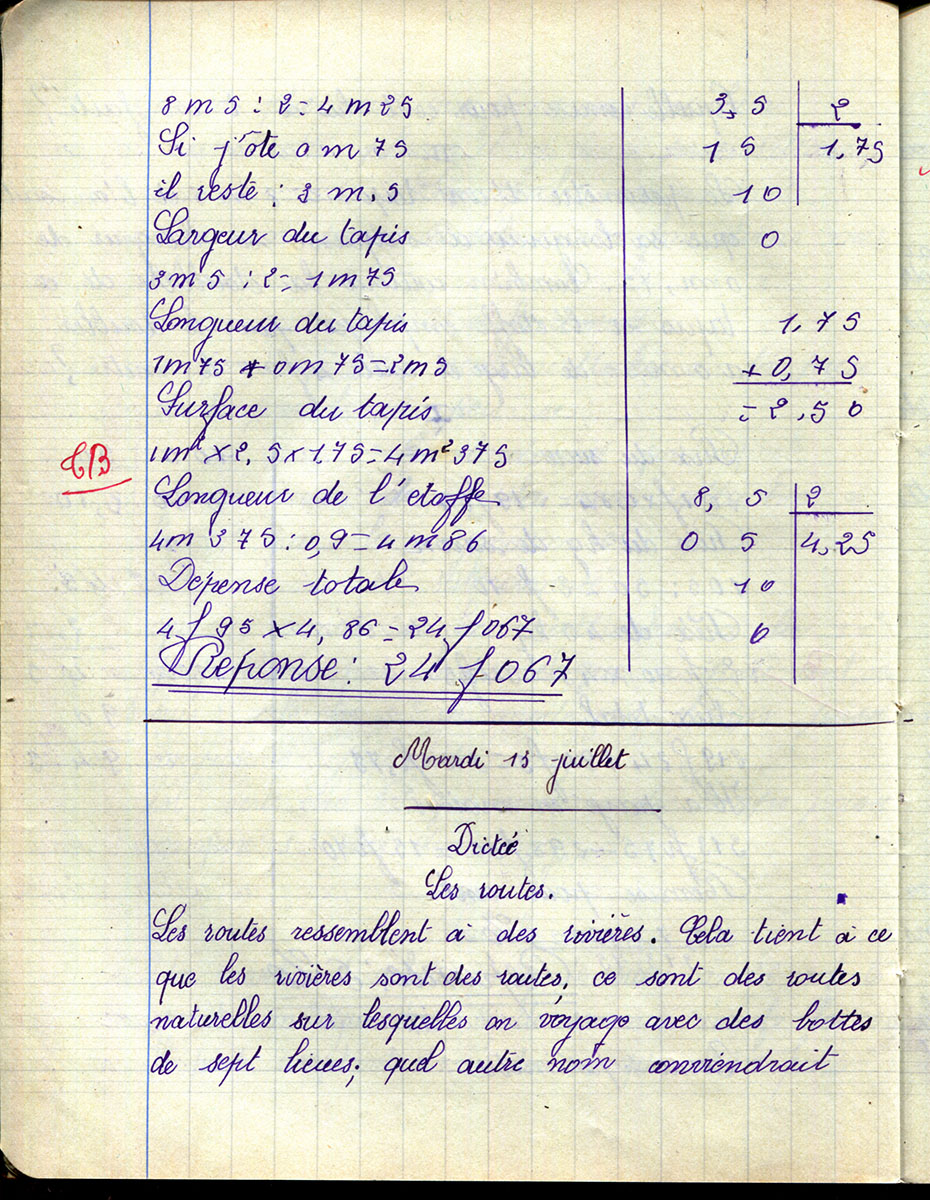 8 m 5 : 2 = 4 m 25
Si j'ôte 0 m 75
il reste : 3 m, 5
Largeur du tapis
3 m 5 : 2 = 1 m 75
Longueur du tapis
1 m 75 + 0 m 75 = 2 m 5
Surface du tapis
1 m² × 2, 5 × 1,75 = 4 m² 375
Longueur de l'étoffe
4 m 375 : 0,9 = 4 m 86
Dépense totale
4 f 95 × 4, 86 = 24 f 067
Réponse : 24 f 067
TB
3, 5 2
1 5 1,75
1 0
0
1, 75
+ 0, 75
= 2, 50
8, 5 2
0 5 4,25
1 0
0
Mardi 15 juillet
Dictée
Les routes.
Les routes ressemblent à des rivières. Cela tient à ce
que les rivières sont des routes, ce sont des routes
naturelles sur lesquelles on voyage avec des bottes
de sept lieues; quel autre nom conviendrait